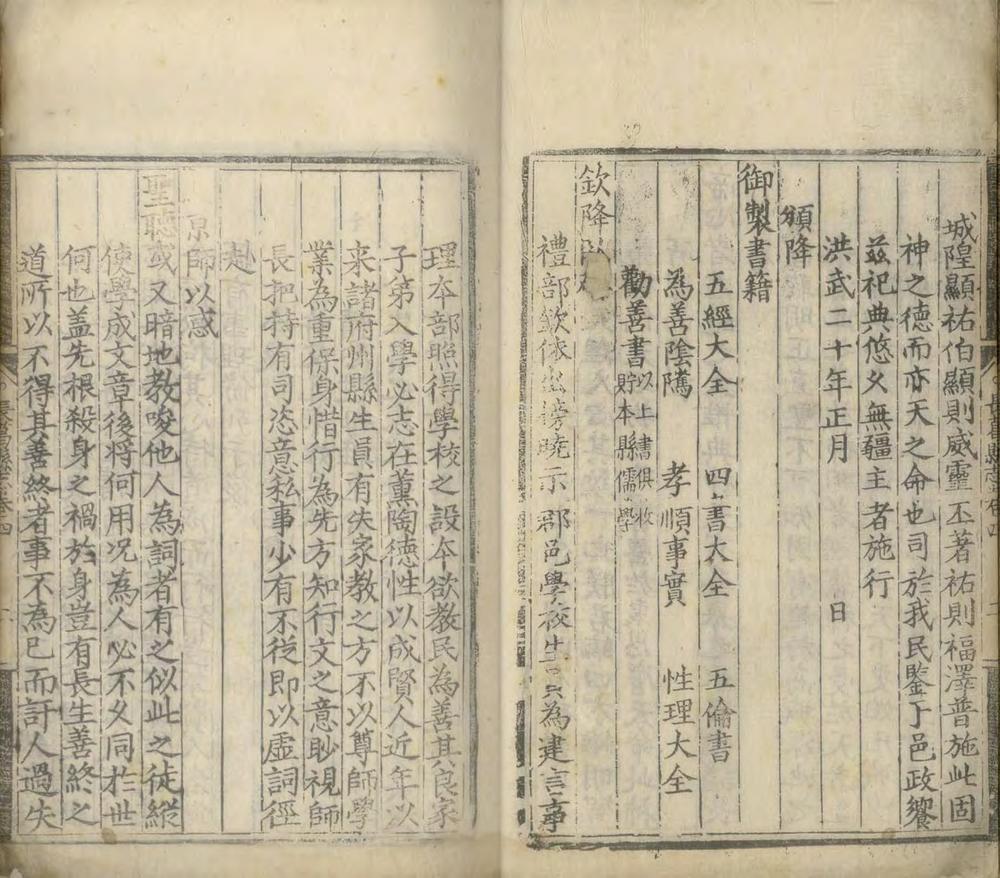 城隍顯祐伯顯則威靈丕著祐則福澤普施此固
神之德而亦天之命也司於我民鑒于邑政饗
茲祀典悠久無疆主者施行
洪武二十年正月　日
頒降
御製書籍
五經大全　四書大全　五倫書
為善陰隲　孝順事實　性理大全
勸善書以上書俱收貯本縣儒學
欽降
禮部欽依出榜曉示郡邑學校生員為建言事
理本部照得學校之設本欲教民為善其良家
子弟入學必志在薰陶德性以成賢人近年以
来諸府州縣生員有失家教之方不以尊師學
業為重保身惜行為先方知行文之意眇視師
長把持有司恣意私事少有不從即以虛詞徑
赴
京師以惑
聖聽或又暗地教唆他人為詞者有之似此之徒縱
使學成文章後將何用况為人必不久同於世
何也盖先根殺身之禍於身豈有長生善終之
道所以不得其善終者事不為己而訐人過失